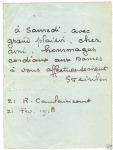 à Samedi, avec
grand plaisir, cher
ami, hommages
cordiaux aux dames
à vous affectueusement
Steinlen
21 R. Caulaincourt
21 Fev. 19.8